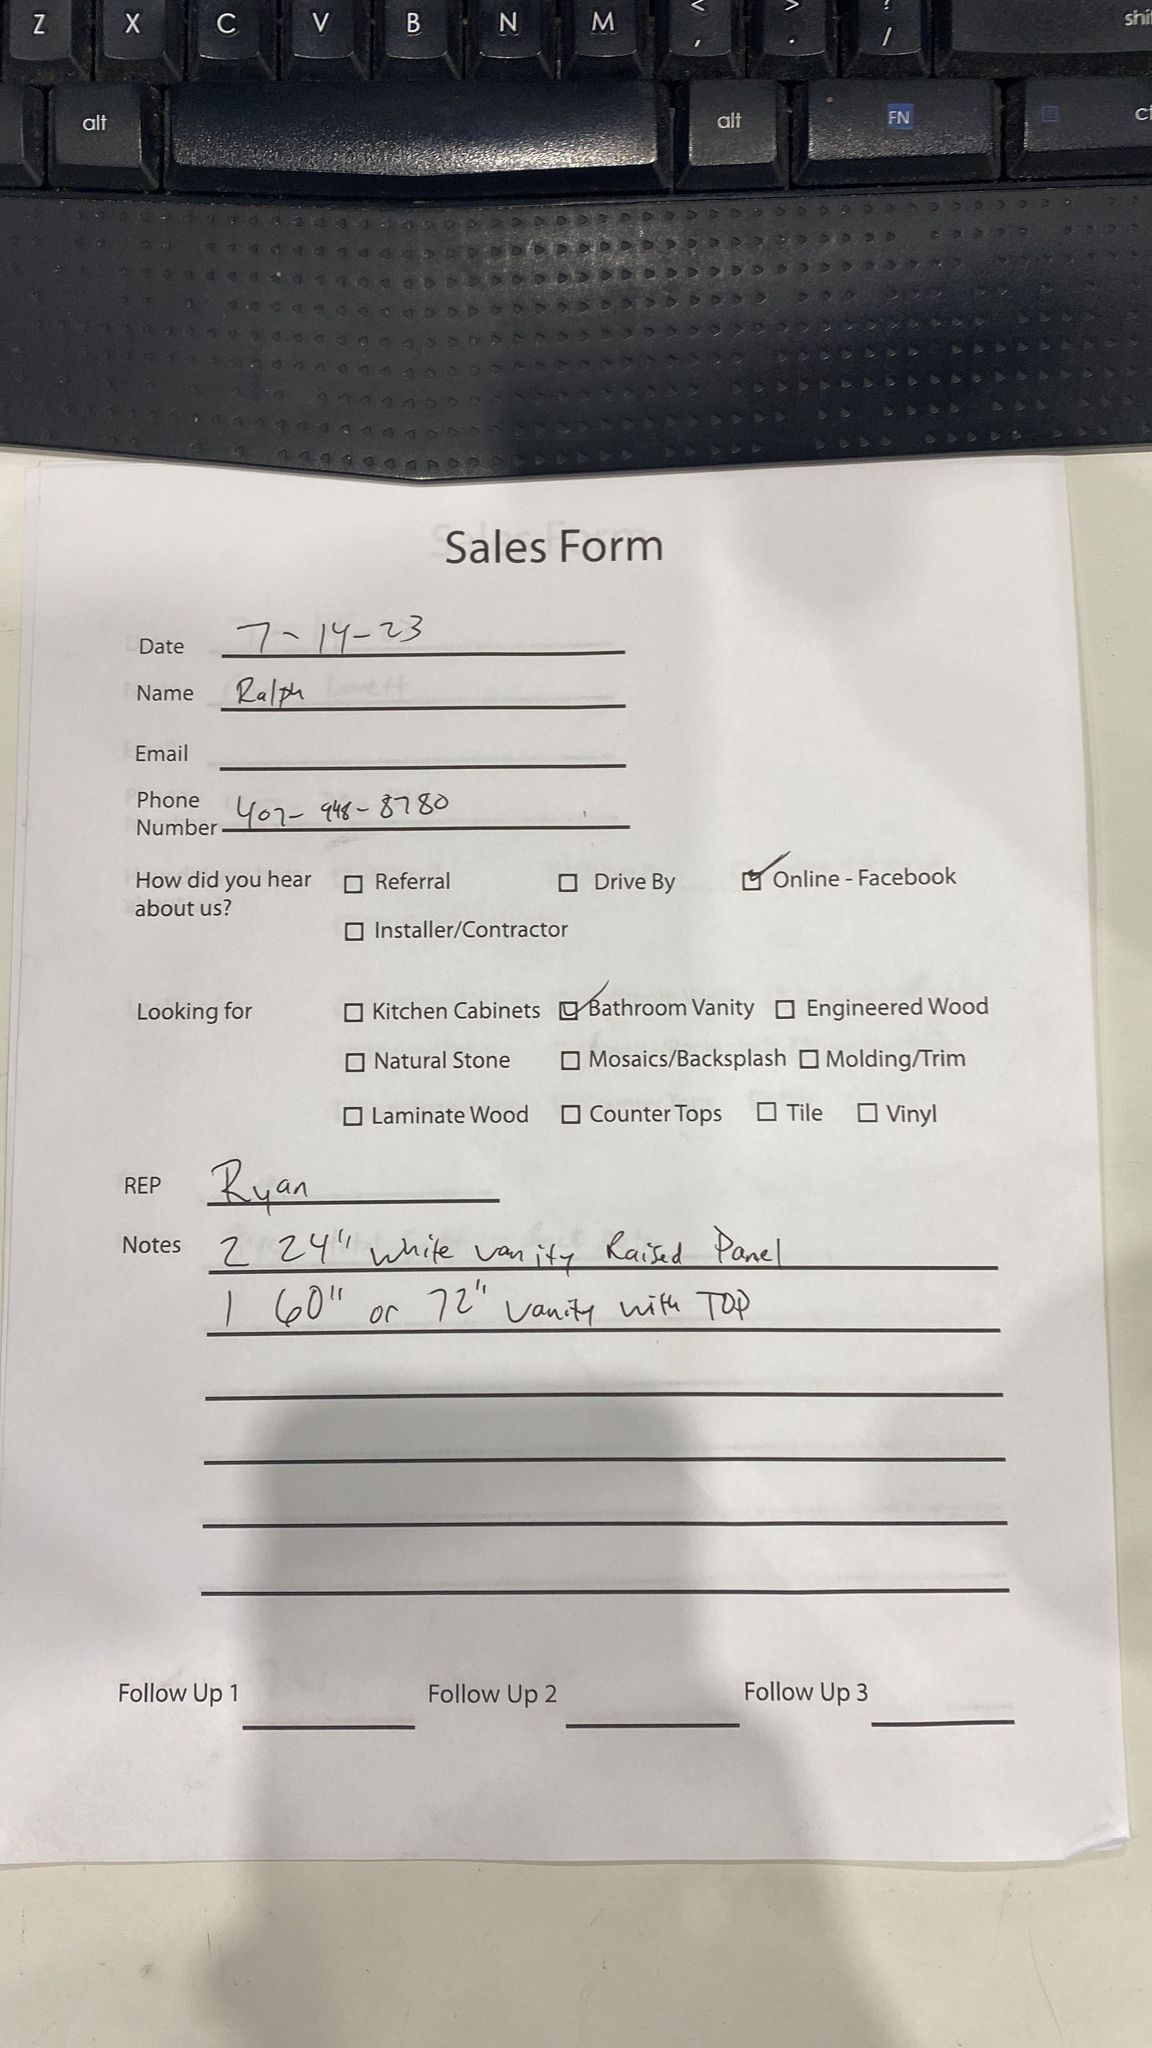 Z X C V B N M < , > . ? / shi
alt alt FN ct
Sales Form
Date 7-14-23
Name Ralph
Email
Phone
Number 407-948-8780
How did you hear
about us?
Referral Drive By Online - Facebook
Installer/Contractor
Looking for Kitchen Cabinets Bathroom Vanity Engineered Wood
Natural Stone Mosaics/Backsplash Molding/Trim
Laminate Wood Counter Tops Tile Vinyl
REP Ryan
Notes 2 24" white vanity Raised Panel
1 60" or 72" vanity with TOP
Follow Up 1 Follow Up 2 Follow Up 3